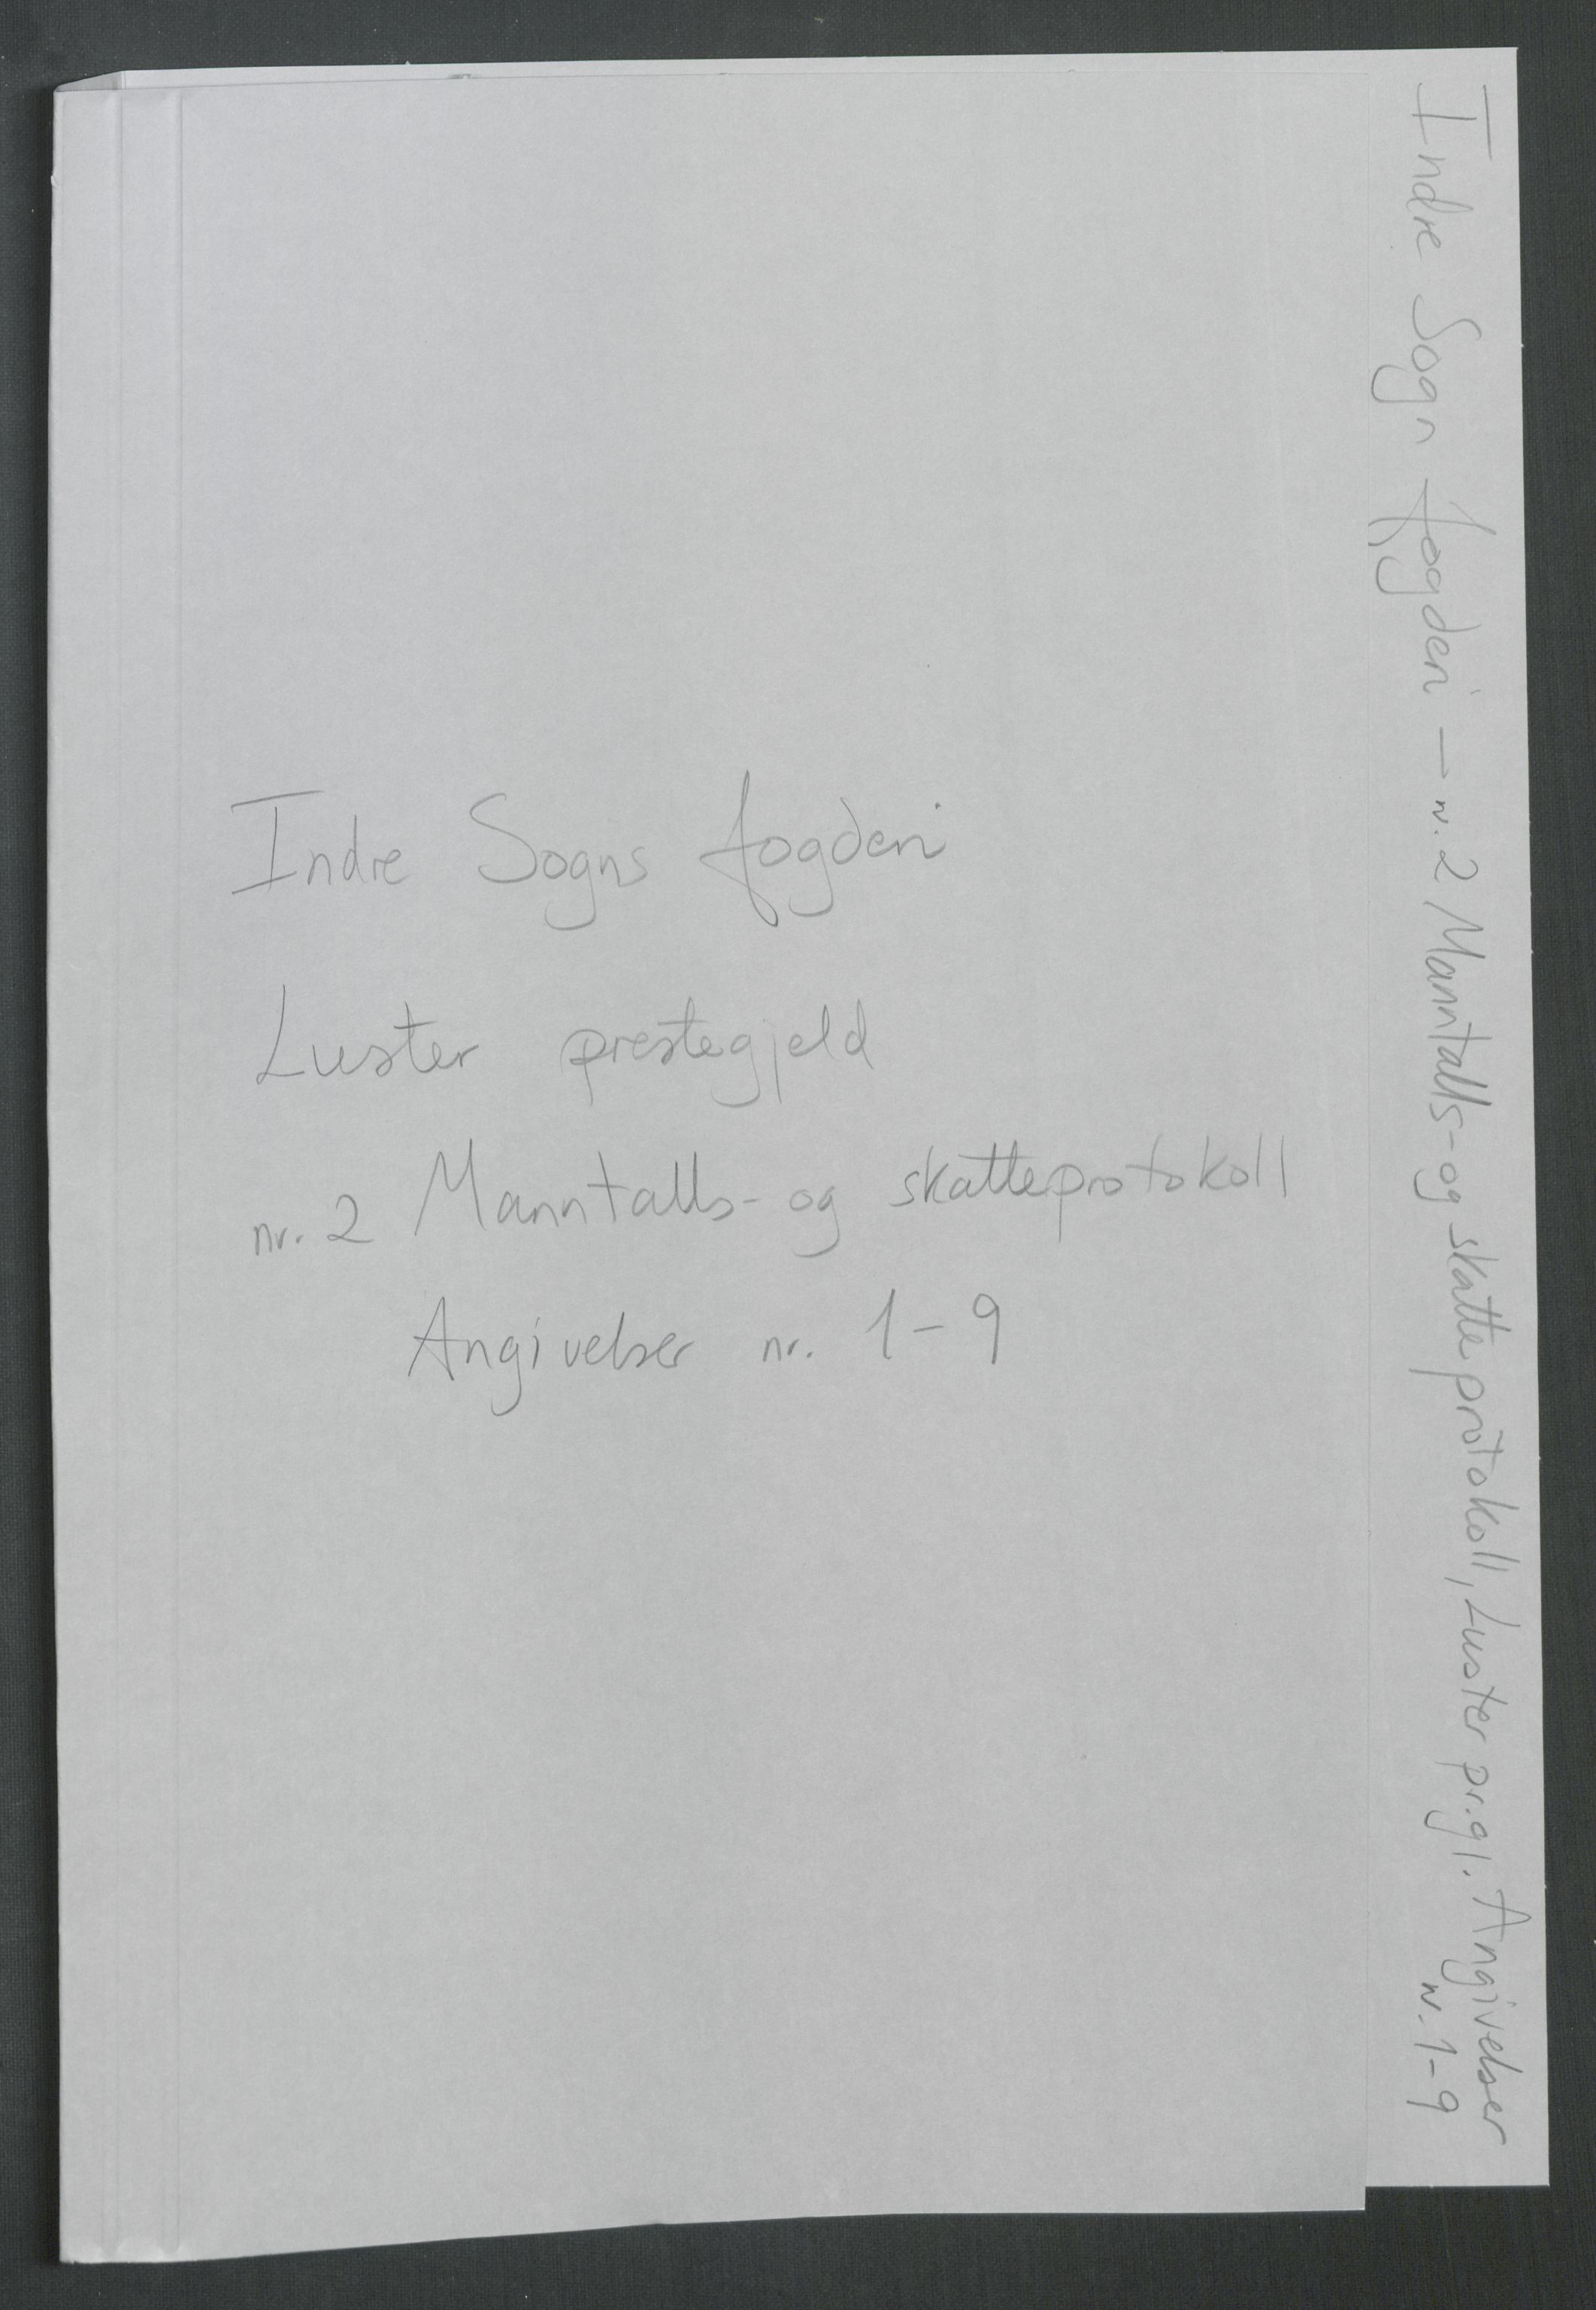 Indre Sogns fogderi
Luster prestegjeld
nr. 2 Manntalls- og skatteprotokoll
Angivelser nr. 1-9
Indre Sogn fogderi - nr. 2 Manntalls- og skatteprotokoll, Luster pr.gj. Angivelser
nr. 1-9